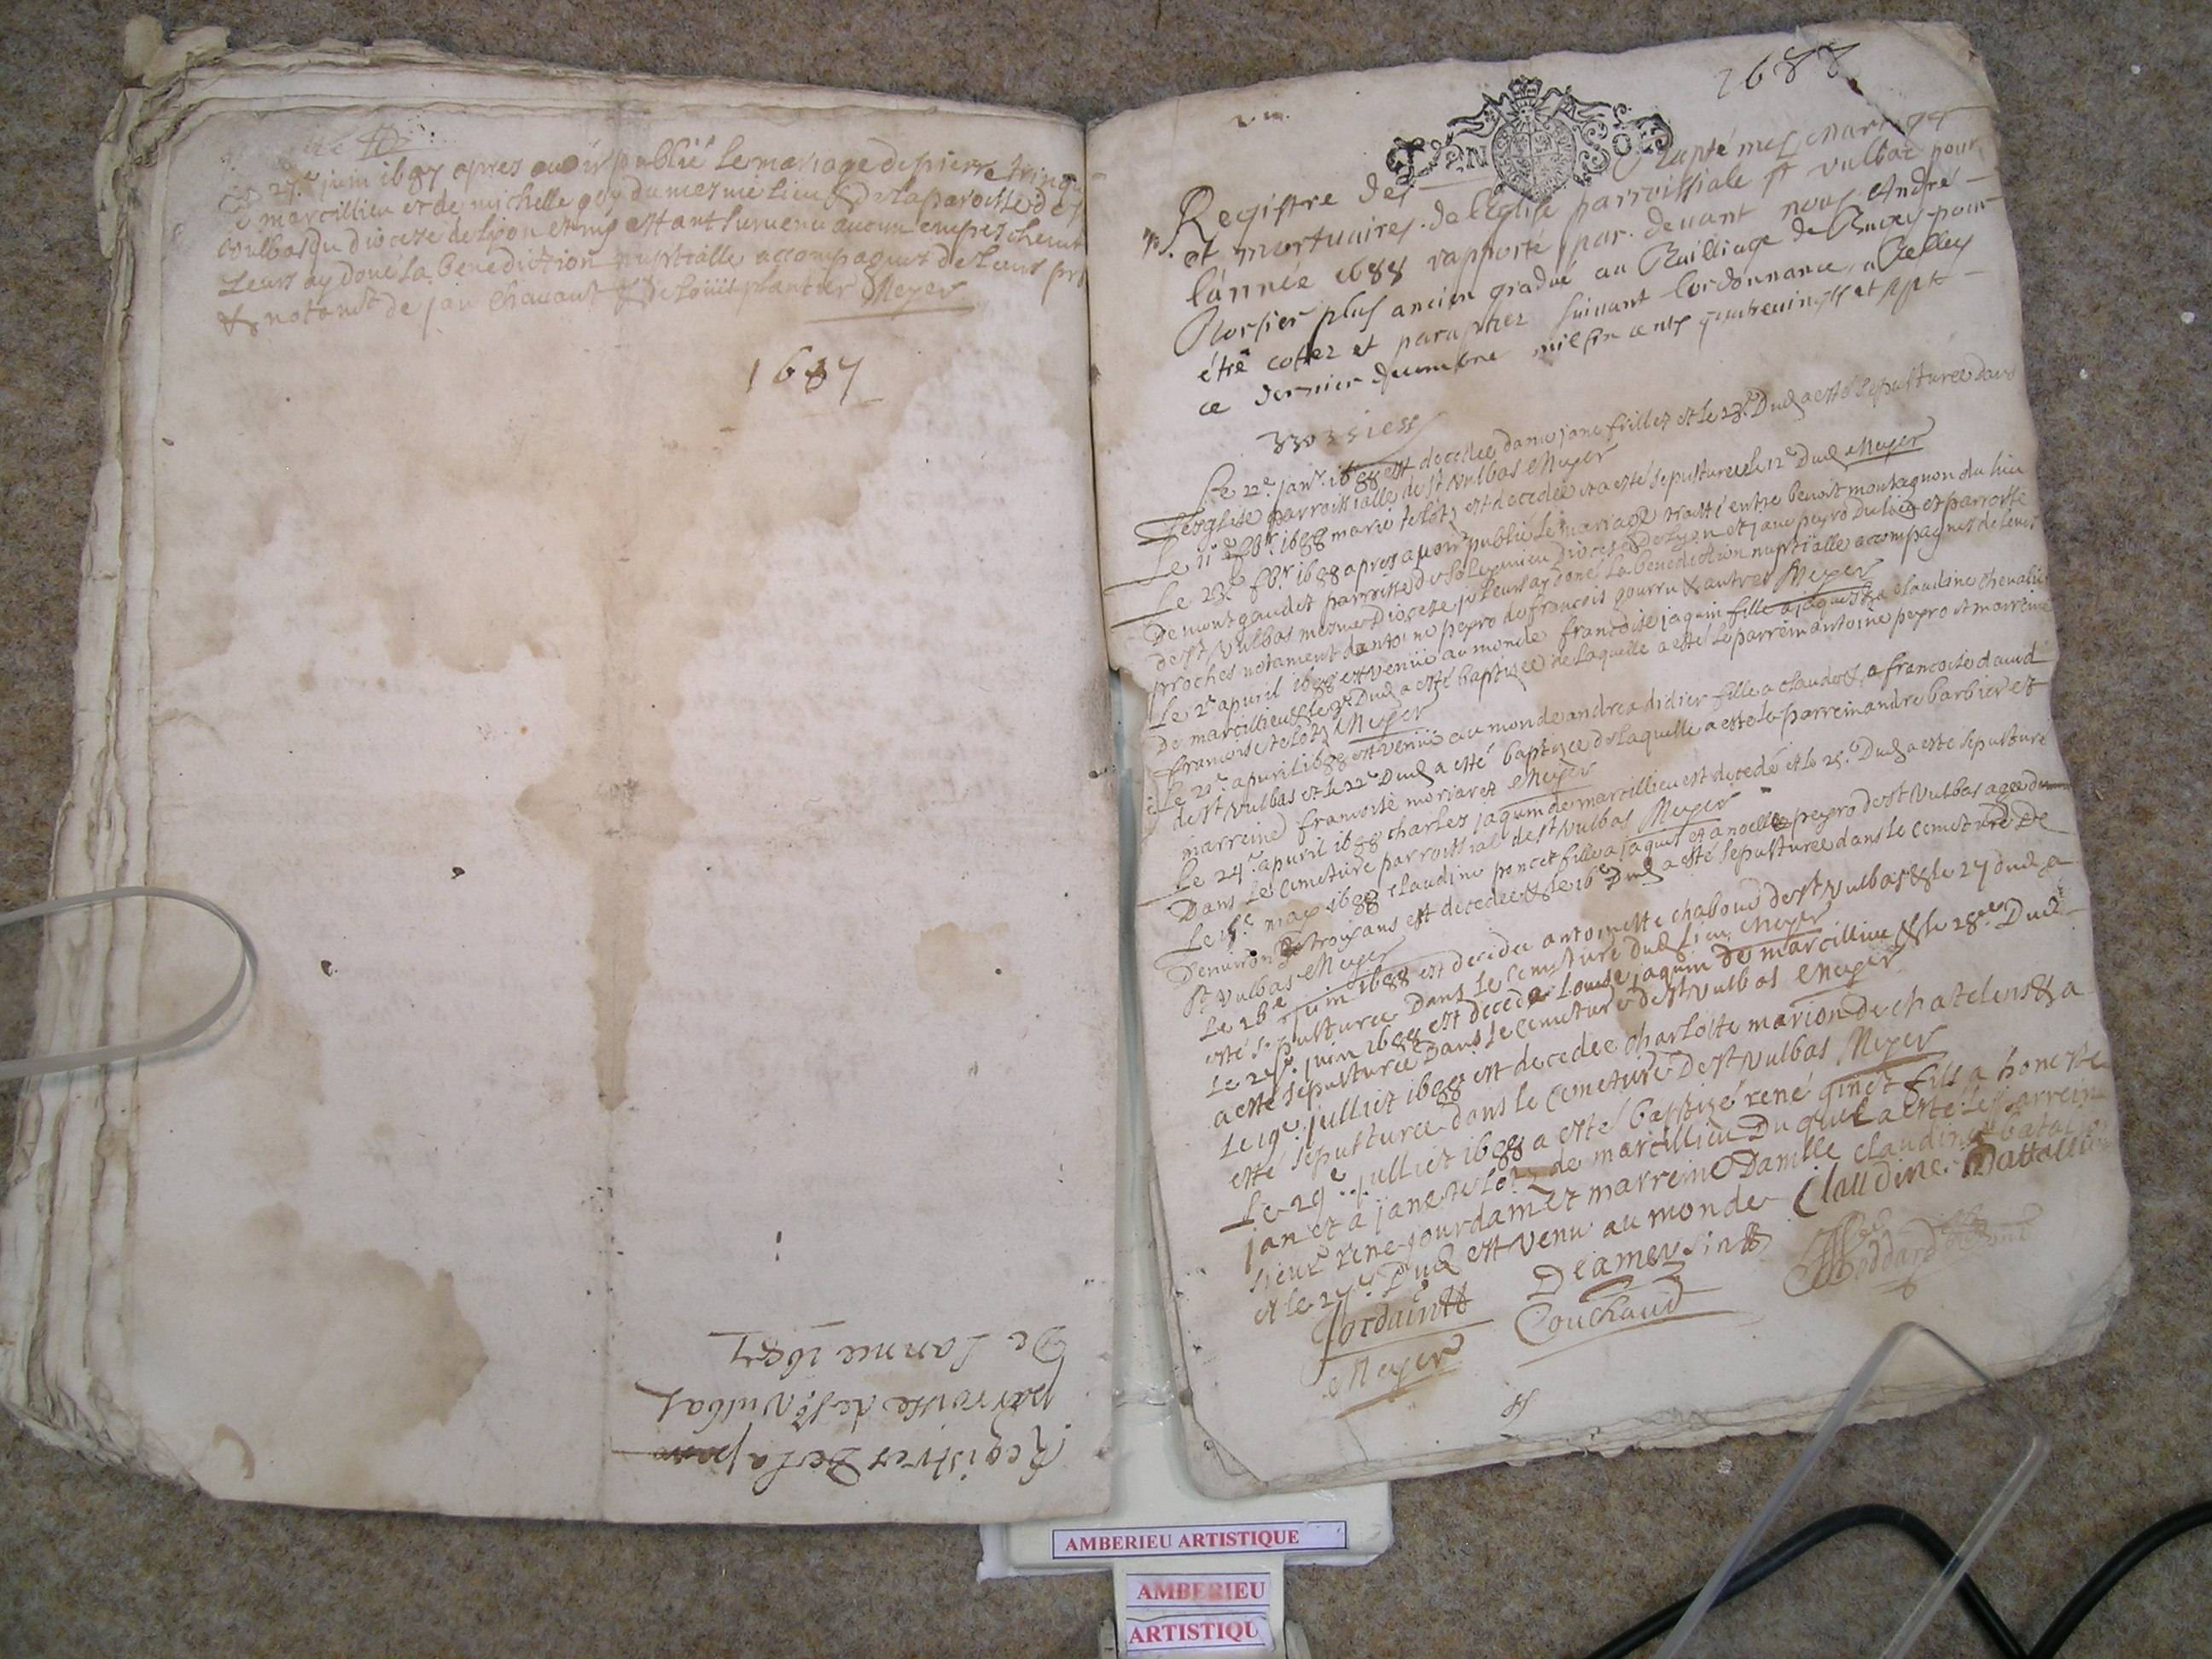 27e juin 1687 apres avoir publié le mariage de pierre trinqu
marcillieu et de michelle goy du mesme lieu & de la paroisse de st
voulbas du diocese de lyon et ny estant survenu aucun empeschemt
Leurs ay doné la benediction nuptialle accompagnes de leurs pro
& notamt de jan chavant & de loüis plantier Meyer
1687
Registres De la paro
parroisse de st. Vulbas
De Lannee 1687
1688
VIN SOLS
Registre des baptémes mariages
et mortuaires de l'Eglise parroissiale st vulbac pour
l'année 1688 rapporté par devant nous André
Rossier plus ancien gradué au Bailliage de Bugey pour
étre cottez et paraphez suivant l'ordonnance, a Belley
ce dernier decembre mil six cents quatrevingts et sept
Le 22e janr. 1688 est decedee dame jane frilles et le 23e Dud a esté sepulturee dans
l'esglise parroissialle de st Vulbas Meyer
Le 11e fbr. 1688 marie telot est decedee et a esté sepulturee le 12e Dud Meyer
Le 23e fbr. 1688 apres avoir publié le mariage traitté entre benoit montagnon du lieu
De montgaudet parroisse de Diocese De Lyon et jane peyro Du lieu et parroisse
de st Vulbas mesme Diocese je leurs ay doné La benediction nuptialle accompagnes de leurs
proches notament dantoine peyro de francois gourru & autres Meyer
Le 2e apvril 1688 est veniie au monde francoise jaquin fille a jaques & a claudine chevalie
De marcillieu & le 3e Dud a esté baptizee de laquelle a esté le parrein antoine peyro et marreine
francoise telot Meyer
Le 21e apvril 1688 est veniie au monde andrea didier fille a claude & a francoise david
de st Vulbas et le 22e Dud a esté baptizee de laquelle a esté le parrein andre barbier et
marreine francoise moriaret Meyer
Le 24e apvril 1688 charles jaquin de marcillieu est decedé et le 25e Dud a esté sepulturé
Dans Le Cemetiere parroissial de st Vulbas Meyer
Le 15e may 1688 claudine poncet fille a jaques et a noelle peyro de st Vulbas agee
Denviron trois ans est decedee & le 16e Dud a esté sepulturee dans le Cemetiere De
st Vulbas Meyer
Le 26e juin 1688 est decedee antoinette chaboud de st Vulbas & le 27 dud a
esté sepulturee Dans le Cemetiere dud Lieu Meyer
Le 27e juin 1688 est decedee Louise jaquin de marcillieu & le 28e Dud
a esté sepulturee Dans le Cemetiere de st Vulbas Meyer
Le 19e julliet 1688 est decedee charlotte marion De chatelens & a
esté sepulturee dans le Cemetiere De st Vulbas Meyer
Le 29e julliet 1688 a esté baptizé rené ginet fils a honeste
jan et a jane telot de marcillieu Du quel a esté le parrein
sieur rene jourdam et marreine Damlle claudine batai
et le 27e Dud est venu au monde Claudine Battaillie
Jordain Deamey
Meyer Couchaud
AMBERIEU ARTISTIQUE
AMBERIEU
ARTISTIQU